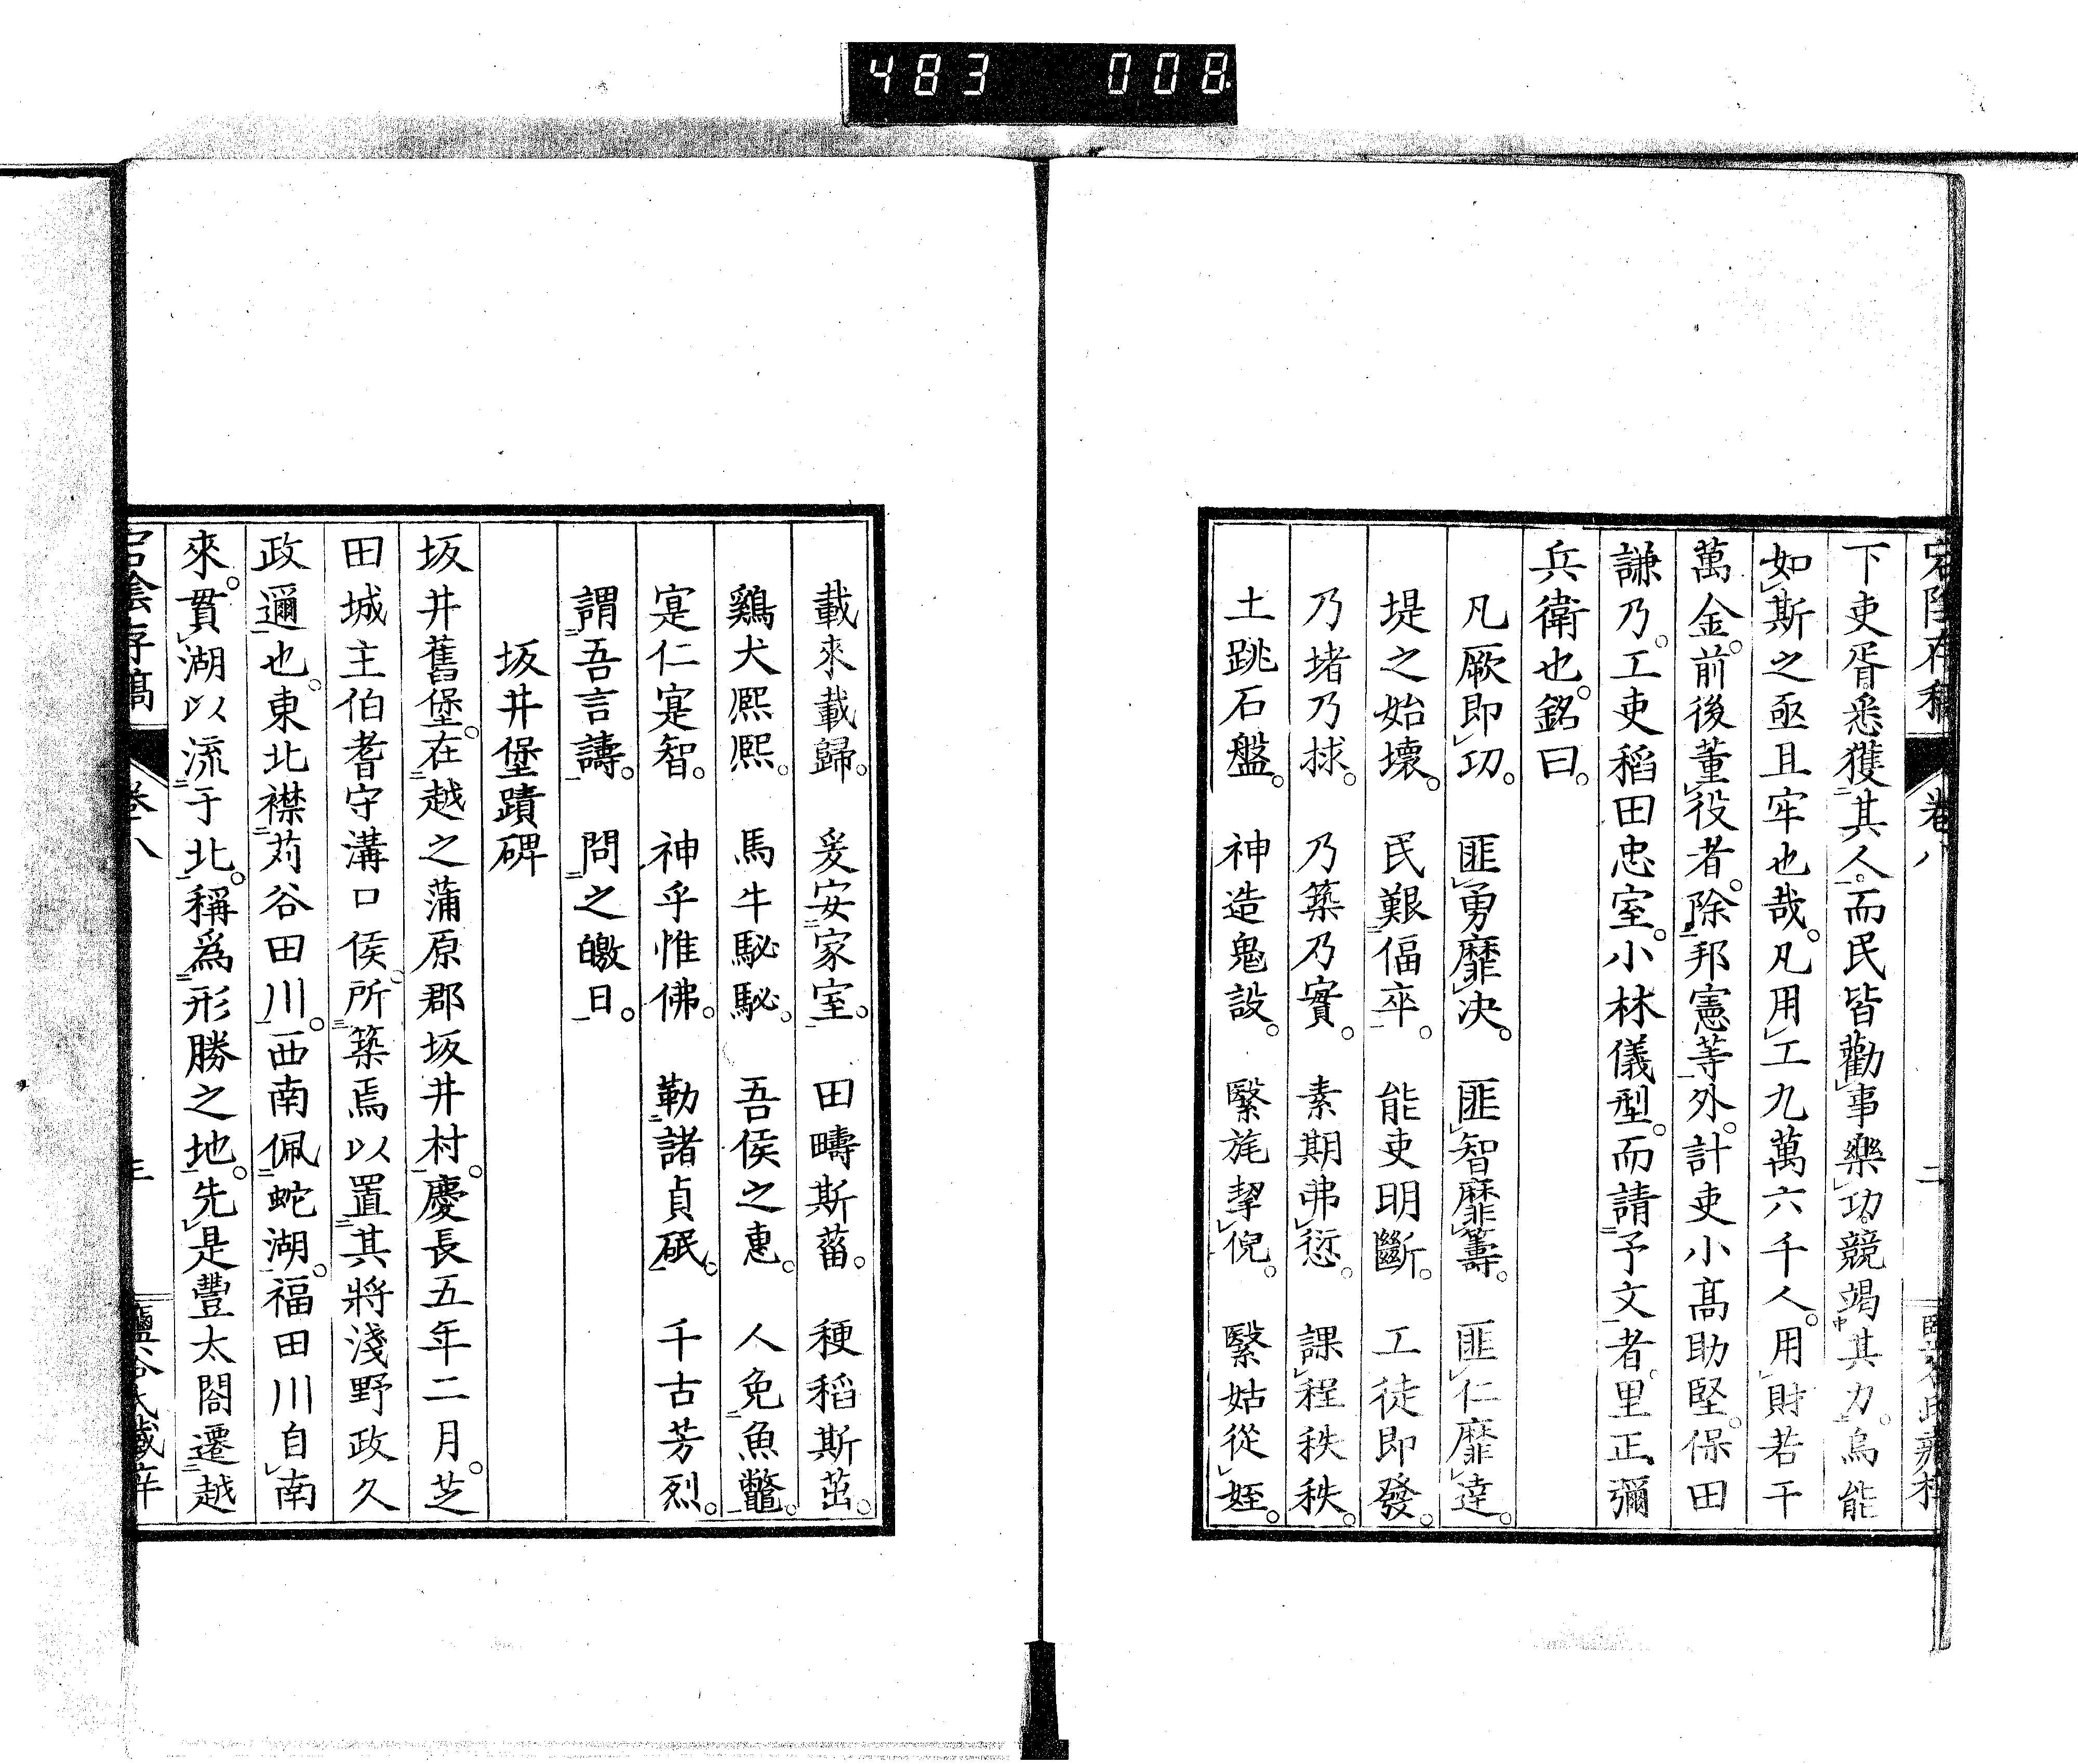 483 008
下吏胥悉獲其人。而民皆勸事樂功。競竭其力。烏能
如斯之亟且牢也哉。凡用工九萬六千人。用財若干
萬金。前後董役者。除邦憲等外。計吏小高助堅。保田
謙乃。工吏稻田忠室。小林儀型。而請予文者。里正彌
兵衛也。銘曰。
凡厥即功。 匪勇靡決。 匪智靡籌。 匪仁靡達。
堤之始壞。 民艱偪卒。 能吏明斷。 工徒即發。
乃堵乃捄。 乃築乃實。 素期弗愆。 課程秩秩。
土跳石盤。 神造鬼設。 繄旄挈倪。 繄姑從姪。
載來載歸。 爰安家室。 田疇斯菑。 稉稻斯茁。
鷄犬熈熈。 馬牛駜駜。 吾侯之惠。 人免魚鼈。
寔仁寔智。 神乎惟佛。 勒諸貞砥。 千古芳烈。
謂吾言譸。 問之皦日。
坂井堡蹟碑
坂井舊堡。在越之蒲原郡坂井村。慶長五年二月。芝
田城主伯耆守溝口侯。所築焉以置其將淺野政久
政邇也。東北襟苅谷田川。西南佩蛇湖。福田川自南
來。貫湖以流于北。稱爲形勝之地。先是豐太閤遷越
宕陰存稿 卷八 三 鹽谷氏藏弆